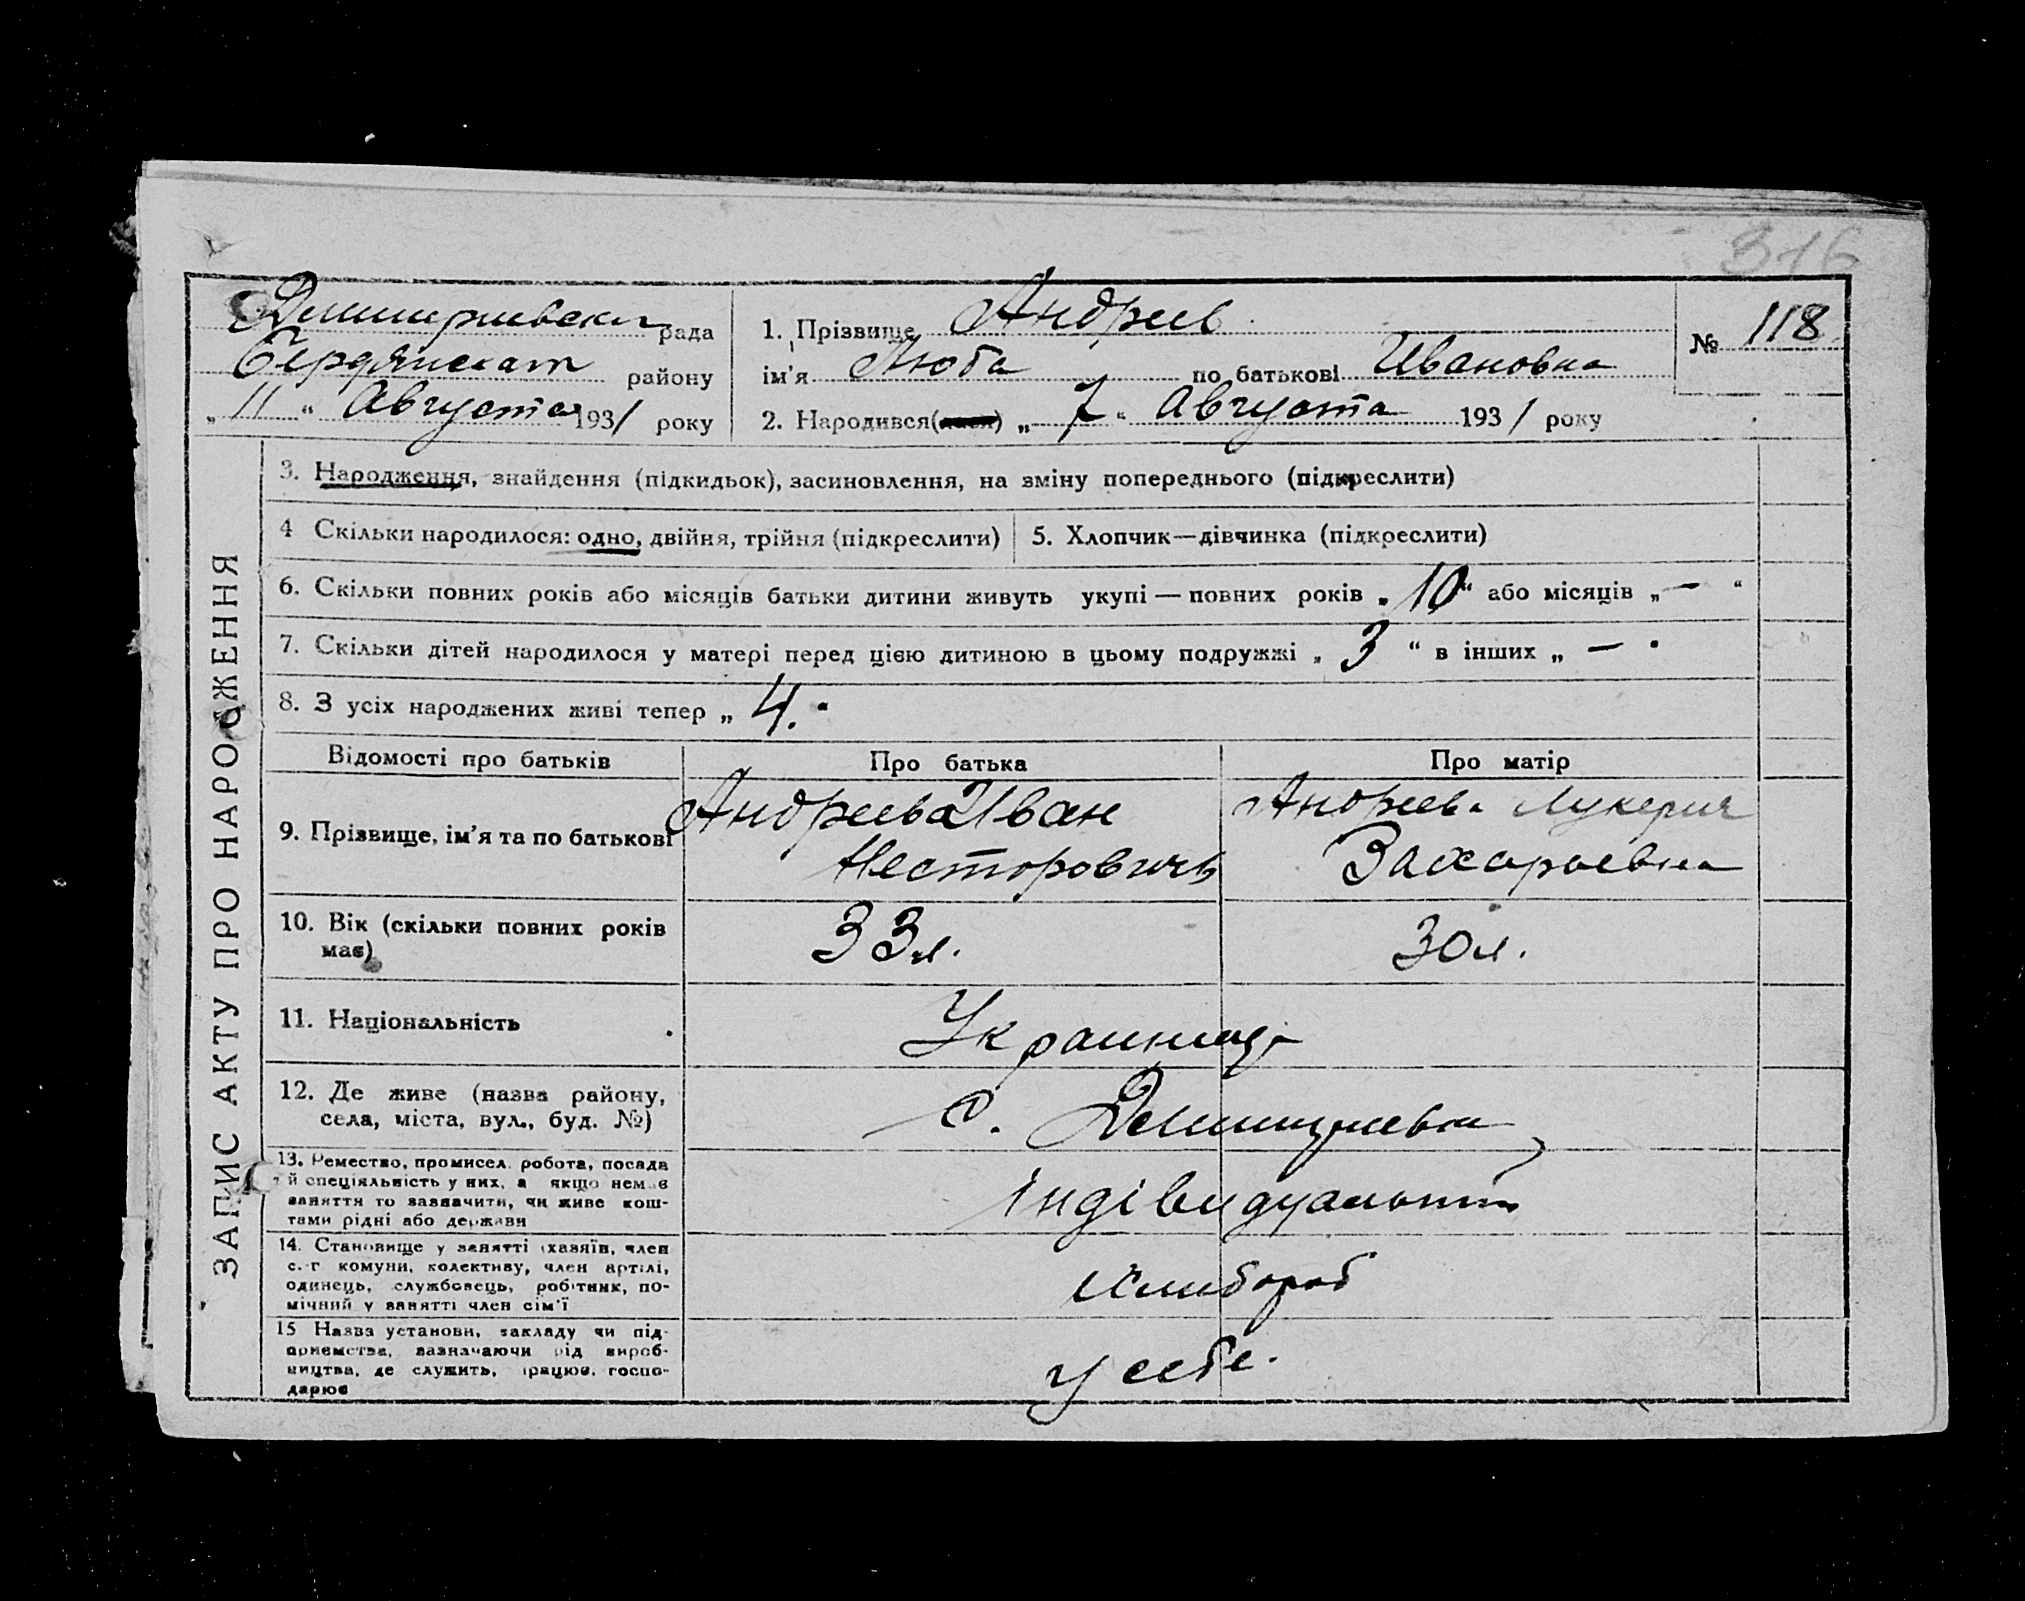 316
Дмитриевска рада
Бердянскат району
„ 11 “ Августа 1931 року
1. Прізвище Андреев
ім'я Люба по батькові Ивановна
№ 118
2. Народився(лася) „ 7 “ Августа 1931 року
ЗАПИС АКТУ ПРО НАРОДЖЕННЯ
3. Народження, знайдення (підкидьок), засиновлення, на зміну попереднього (підкреслити)
4 Скільки народилося: одно, двійня, трійня (підкреслити)
5. Хлопчик—дівчинка (підкреслити)
6. Скільки повних років або місяців батьки дитини живуть укупі — повних років „ 10 “ або місяців „ — “
7. Скільки дітей народилося у матері перед цією дитиною в цьому подружжі „ 3 “ в інших „ — “
8. З усіх народжених живі тепер „ 4. “
Відомості про батьків
Про батька
Про матір
9. Прізвище, ім'я та по батькові
Андреева Иван
Несторовичь
Андреева Лукерия
Захарьевна
10. Вік (скільки повних років
має)
33 л.
30 л.
11. Національність
Украинци
12. Де живе (назва району,
села, міста, вул., буд. №)
с. Дмитриевка
13. Ремество, промисел. робота, посада
й спеціяльність у них, а якщо немає
заняття то зазначити, чи живе кош-
тами рідні або держави
14. Становище у занятті (хазяїн, член
с.-г комуни, колективу, член артілі,
одинець, службовець, робітник, по-
мічний у занятті член сім'ї
Хлибороб
15 Назва установи, закладу чи під-
приємства, зазначаючи рід вироб-
ництва, де служить, працює, госпо-
дарює
у себе.